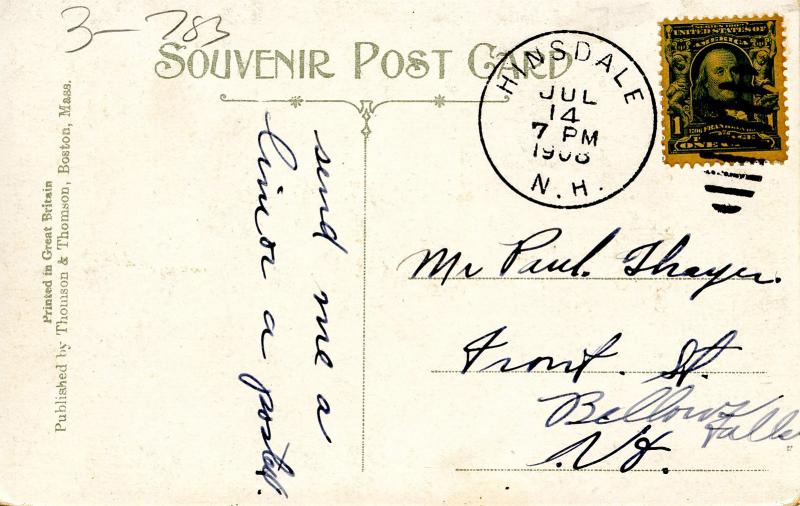 3-783
SOUVENIR POST CARD
HINSDALE
JUL
14
7 PM
1908
N.H.
SERIES 1902
UNITED STATES OF
AMERICA
1
FRANKLIN
1
ONE
Printed in Great Britain
Published by Thomson & Thomson, Boston, Mass.
send me a
line or a postal.
Mr Paul. Thayer.
Front. St.
Bellows
Falls
Vt.